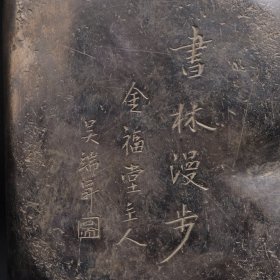 書林漫步
金福堂主人
吴瑞昇圖